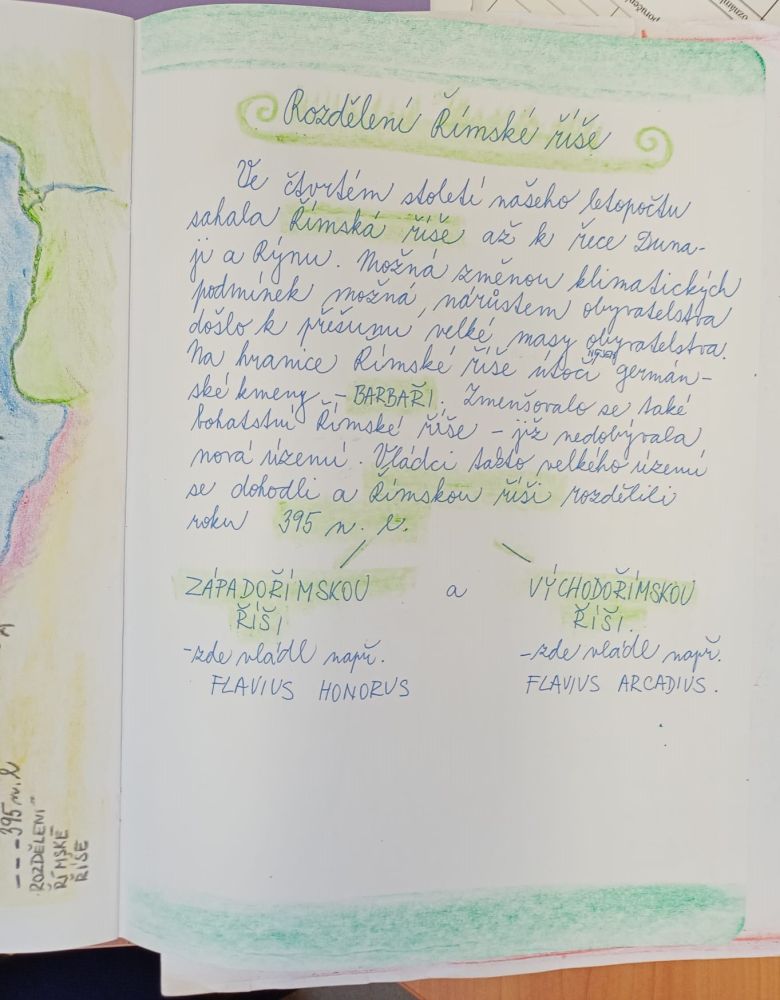 Rozdělení Římské říše
Ve čtvrtém století našeho letopočtu
sahala Římská říše až k řece Duna-
ji a Rýnu. Možná změnou klimatických
podmínek možná, nárůstem obyvatelstva
došlo k přesunu velké masy obyvatelstva.
Na hranice Římské říše útočí germán-
ské kmeny - BARBAŘI. Zmenšovalo se také
bohatství Římské říše - již nedobývala
nová území. Vládci takto velkého území
se dohodli a Římskou říši rozdělili
roku 395 n. l.
ZÁPADOŘÍMSKOU a VÝCHODOŘÍMSKOU
ŘÍŠI ŘÍŠI.
-zde vládl např. -zde vládl např.
FLAVIUS HONORUS FLAVIUS ARCADIUS.
---395 n. l
ROZDĚLENÍ
ŘÍMSKÉ
ŘÍŠE